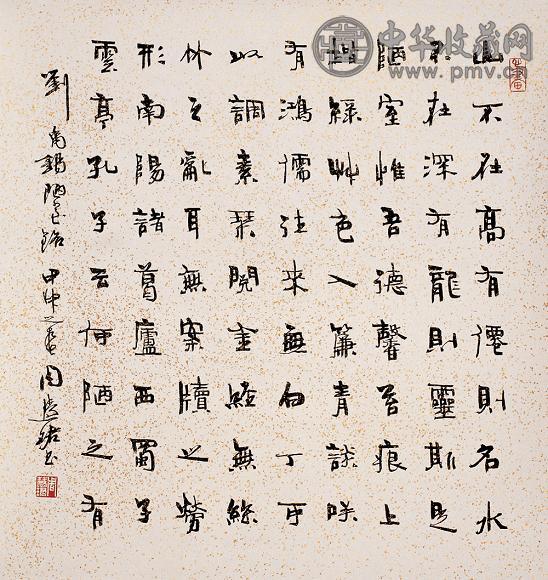 山不在高有僊則名水
不在深有龍則靈斯是
陋室惟吾德馨苔痕上
階綠艸色入簾青談咲
有鴻儒往來無白丁可
以調素琹閱金經無絲
竹之亂耳無案牘之勞
形南陽諸葛廬西蜀子
雲亭孔子云何陋之有
劉禹錫陋室銘 甲申之春 周慧珺書
中华收藏网
www.pmv.cn